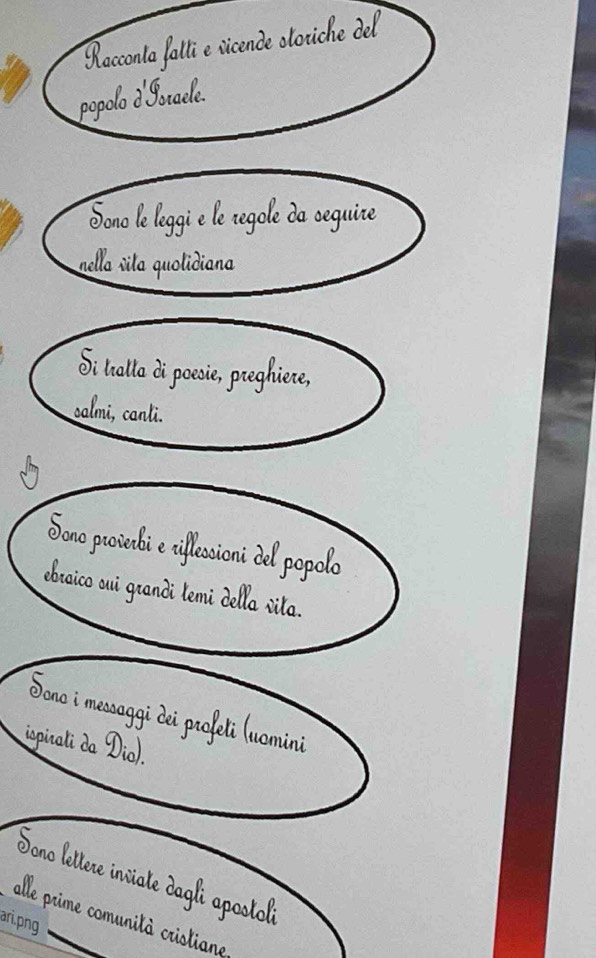 Racconta fatti e vicende storiche del
popolo d'Israele.
Sono le leggi e le regole da seguire
nella vita quotidiana
Si tratta di poesie, preghiere,
salmi, canti.
Sono proverbi e riflessioni del popolo
ebraico sui grandi temi della vita.
Sono i messaggi dei profeti (uomini
ispirati da Dio).
Sono lettere inviate dagli apostoli
alle prime comunità cristiane.
ari.png